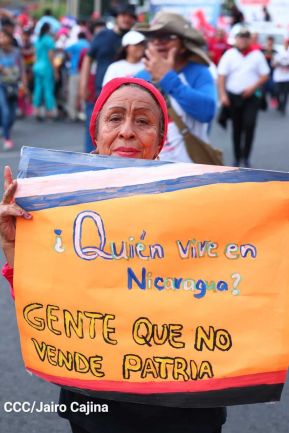 ¿Quién vive en
Nicaragua?
GENTE QUE NO
VENDE PATRIA
CCC/Jairo Cajina